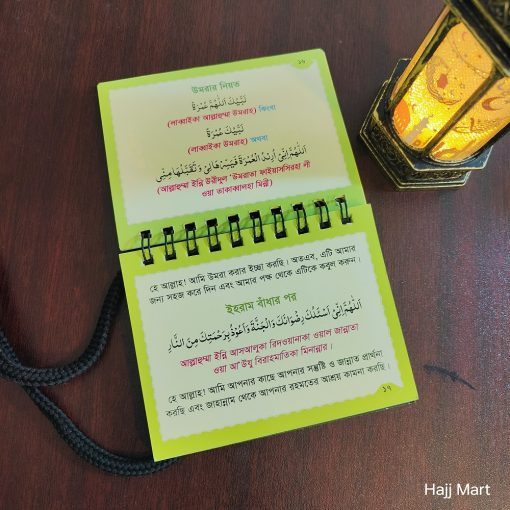 ১৬
উমরার নিয়ত
لَبَّيْكَ اَللّٰهُمَّ عُمْرَةً কিংবা
(লাব্বাইকা আল্লাহুম্মা উমরাহ)
لَبَّيْكَ عُمْرَةً অথবা
(লাব্বাইকা উমরাহ)
اَللّٰهُمَّ اِنِّىْ اُرِيْدُ الْعُمْرَةَ فَيَسِّرْهَا لِىْ وَتَقَبَّلْهَا مِنِّىْ
(আল্লাহুম্মা ইন্নি উরীদুল ‘উমরাতা ফাইয়াসসিরহা লী
ওয়া তাকাব্বালহা মিন্নী)
হে আল্লাহ! আমি উমরা করার ইচ্ছা করছি। অতএব, এটি আমার
জন্য সহজ করে দিন এবং আমার পক্ষ থেকে এটিকে কবুল করুন।
ইহরাম বাঁধার পর
اَللّٰهُمَّ اِنِّىْ اَسْئَلُكَ رِضْوَانَكَ وَالْجَنَّةَ وَاَعُوْذُ بِرَحْمَتِكَ مِنَ النَّارِ
আল্লাহুম্মা ইন্নি আসআলুকা রিদওয়ানাকা ওয়াল জান্নাতা
ওয়া আ‘উযু বিরাহমাতিকা মিনান্নার।
হে আল্লাহ! আমি আপনার কাছে আপনার সন্তুষ্টি ও জান্নাত প্রার্থনা
করছি এবং জাহান্নাম থেকে আপনার রহমতের আশ্রয় কামনা করছি।
১৭
Hajj Mart